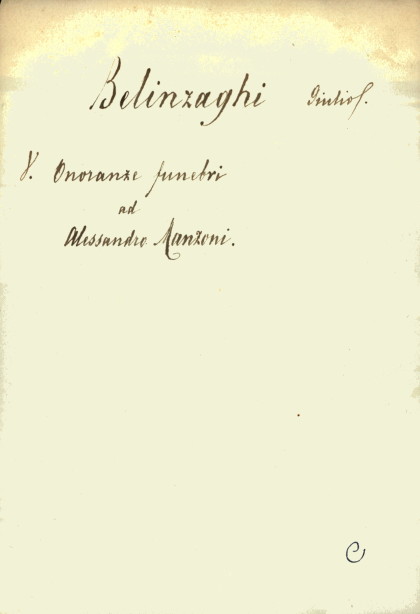 Belinzaghi Giulio
V. Onoranze funebri
ad
Alessandro Manzoni.
C